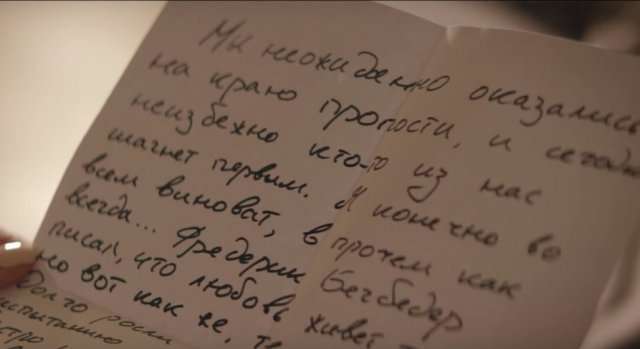 Мы неожиденно оказались
на краю пропости, и сегодня
неизбежно кто-то из нас
шагнет первым. Я конечно во
всем виноват, в прочем как
всегда... Фредерик Бегбедер
писал, что любовь живет
но вот как же,
Долго